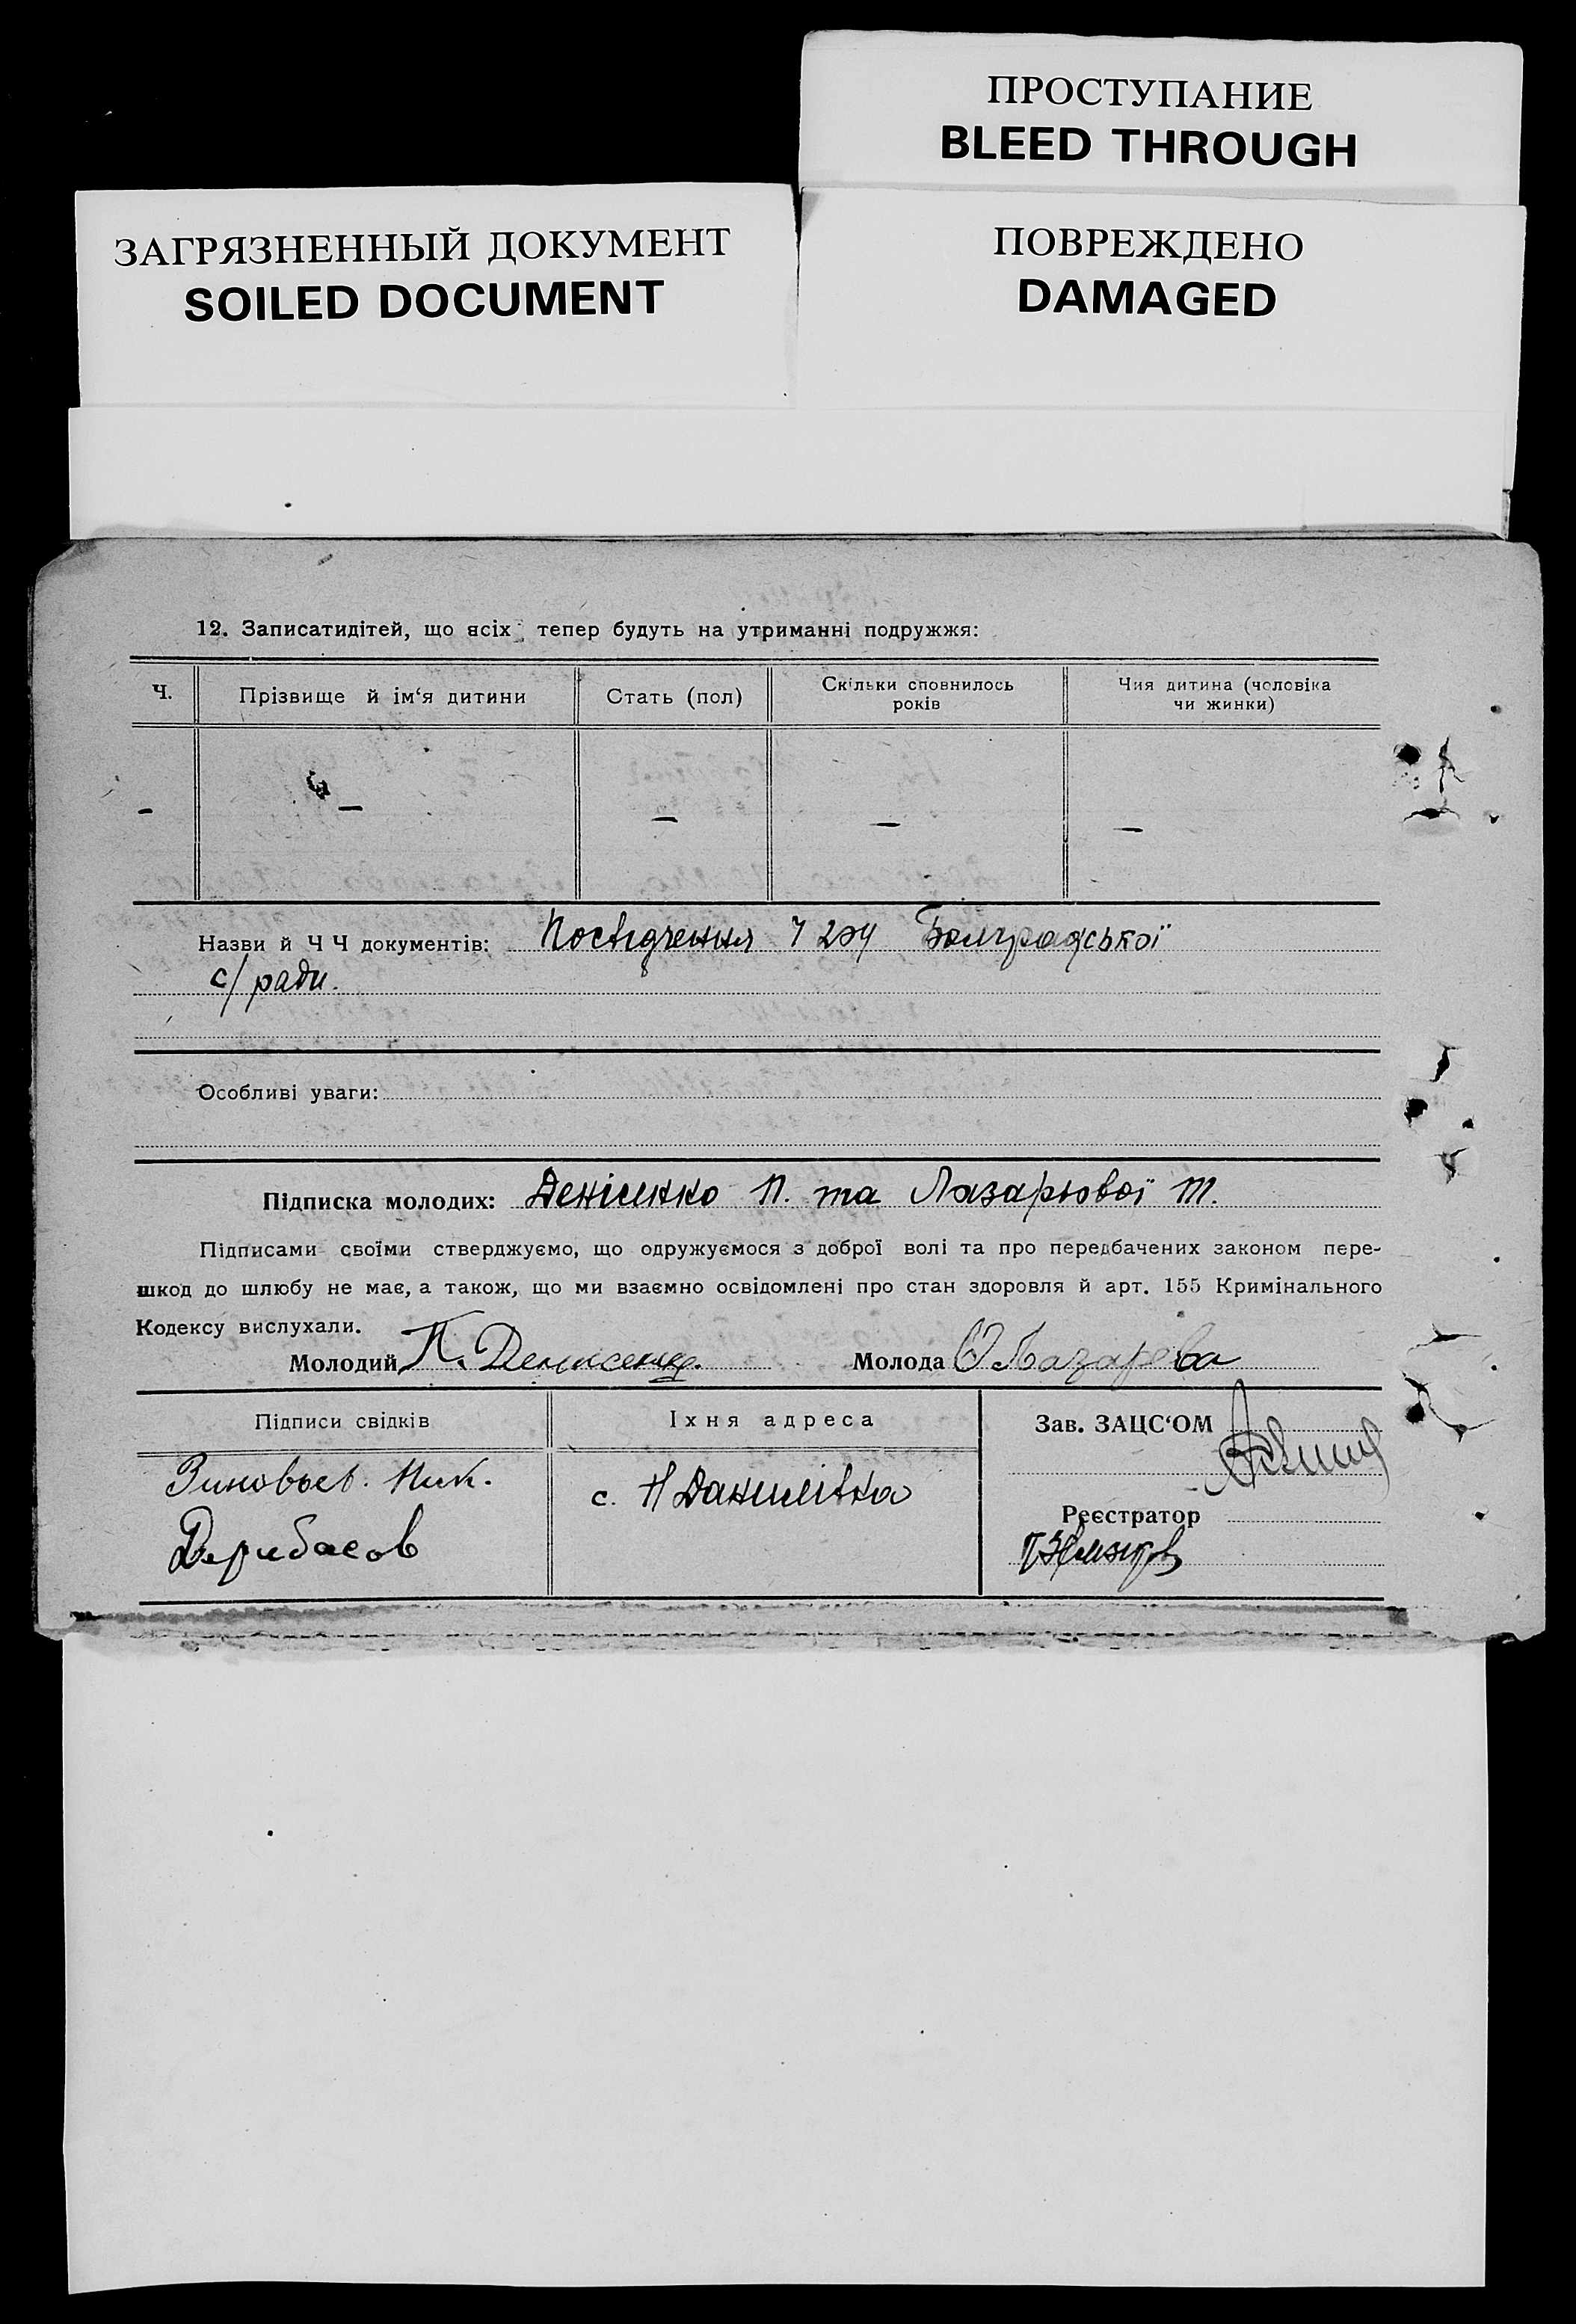 ПРОСТУПАНИЕ
BLEED THROUGH
ЗАГРЯЗНЕННЫЙ ДОКУМЕНТ
SOILED DOCUMENT
ПОВРЕЖДЕНО
DAMAGED
12. Записатидітей, що всіх тепер будуть на утриманні подружжя:
Ч. Прізвище й ім‘я дитини Стать (пол) Скільки сповнилось років Чия дитина (чоловіка чи жинки)
— — — — —
Назви й Ч Ч документів: Посвідчення Ч Болградської
с/ ради.
Особливі уваги:
Підписка молодих: Денісенко П. та Лазарьової Т.
Підписами своїми стверджуємо, що одружуємося з доброї волі та про передбачених законом пере-
шкод до шлюбу не має, а також, що ми взаємно освідомлені про стан здоровля й арт. 155 Кримінального
Кодексу вислухали.
Молодий П. Денисенко. Молода Лазарева
Підписи свідків Їхня адреса Зав. ЗАЦС‘ОМ
Зиновьев. Ник. с. Н Данилівка
Реєстратор
Дерибасов